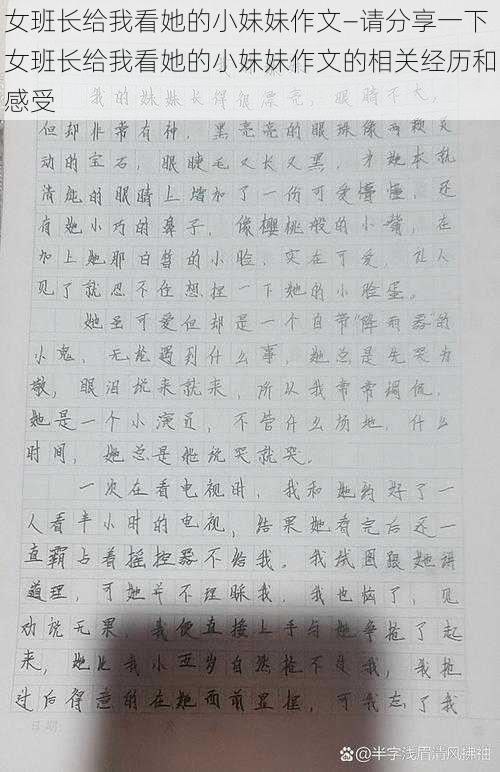 女班长给我看她的小妹妹作文—请分享一下
女班长给我看她的小妹妹作文的相关经历和
感受
我的妹妹长得很漂亮，眼睛不大，
但却非常有神，黑亮亮的眼珠像两颗灵
动的宝石，眼睫毛又长又黑，为她本就
清纯的眼睛上增加了一份可爱懵懂，还
有她小巧的鼻子，像樱桃般的小嘴，在
加上她那白皙的小脸，实在可爱，让人
见了就忍不住想捏一下她的小脸蛋。
她虽可爱但却是一个自带“降雨器”的
小鬼，无论遇到什么事，她总是先哭为
敬，眼泪说来就来，所以我常常调侃，
她是一个小演员，不管什么场地，什么
时间，她总是能说哭就哭。
一次在看电视时，我和她约好了一
人看半小时的电视，结果她看完后还一
直霸占着摇控器不给我。我试图跟她讲
道理，可她并不理睬我，我也恼了，见
劝说无果，我便直接上手与她争抢了起
来，她比我小五岁自然抢不过我，我抢
过后得意的在她面前显摆，可我忘了我
日期：
@半字浅眉清风拂袖